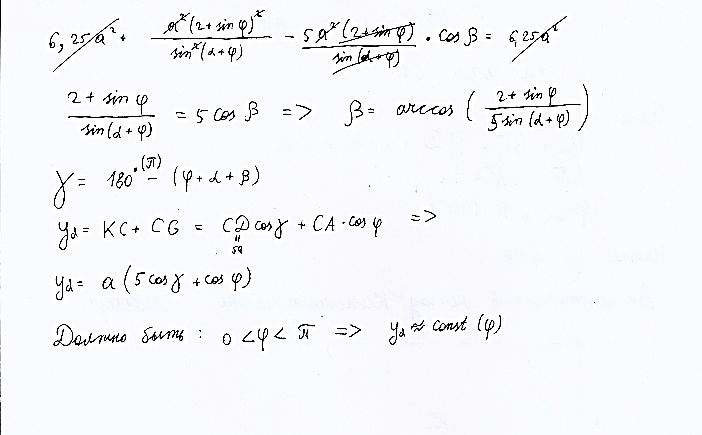 6,25a² + a²(2+sin φ)² / sin²(α+φ) − 5a²(2+sin φ) / sin(α+φ) · cos β = 6,25a²
2 + sin φ / sin(α+φ) = 5 cos β => β = arccos (2+ sin φ / 5 sin(α+φ))
γ = 180° (π) − (φ+α+β)
y_d = KC + CG = CD cos γ + CA · cos φ =>
" 5a
y_d = a (5 cos γ + cos φ)
Должно быть : 0 < φ < π => y_d ≈ const (φ)